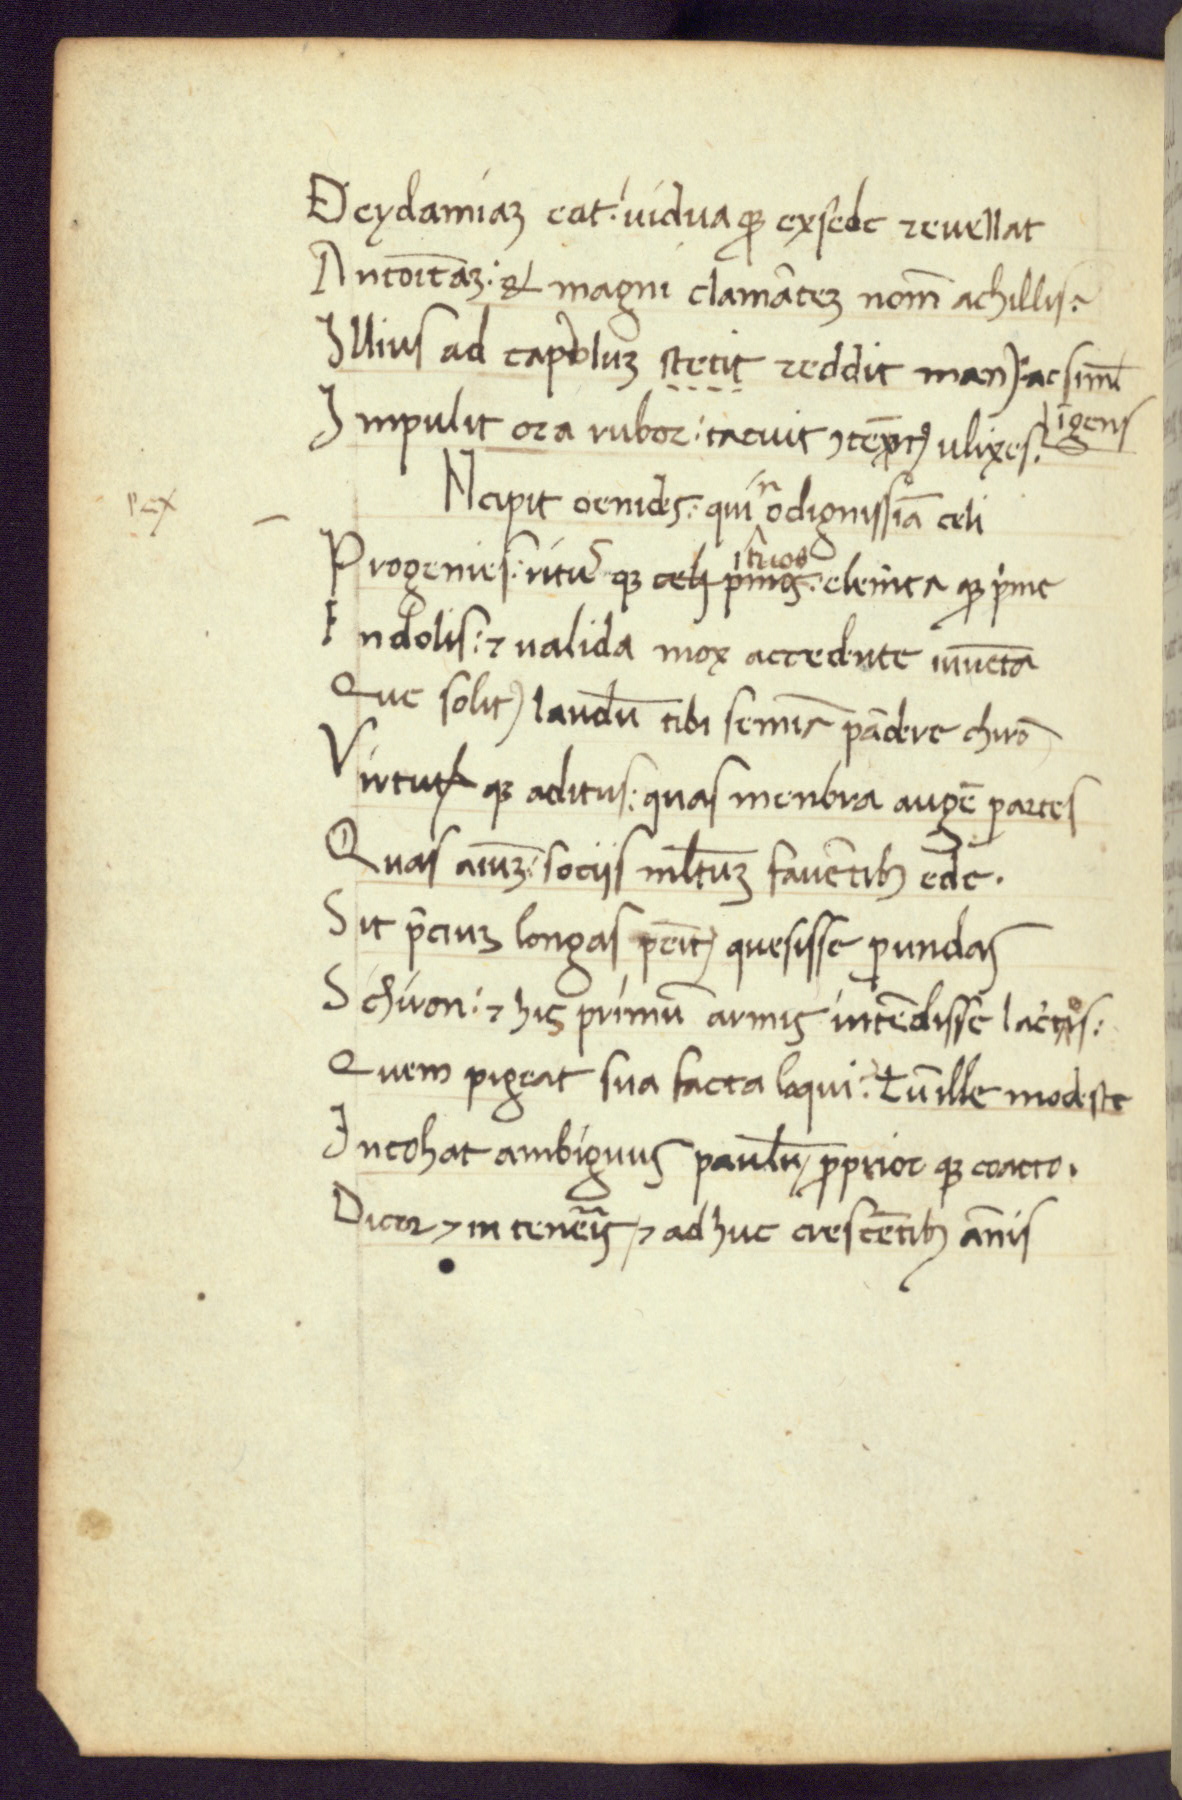 Deydamiaꝫ eat: uidua qꝫ exsede reuellat
Antoitãꝫ: & magni clamãteꝫ nom̃ achillis:
Illius ad capuluꝫ stetit reddit man9: ac siml̃
Impulit ora rubor: tacuit 9tẽpt9 ulixes:
Ncipit oenides: quin o dignissiã celi
Progenies: ritus qꝫ tuos elem̃ta qꝫ p̃me
Indolis: ⁊ ualida mox accedente iuuẽta
Que solit9 laudũ tibi semĩa pãdere chirõ
Virtutꝭ qꝫ aditus: quas menbra augẽ partes
Quas aiuꝫ: sociis ml̃tuꝫ fauẽtibꝫ ede.
Sit p̃ciuꝫ longas penit9 quesisse p undas
Schiron: ⁊ his primũ armis intẽdisse lactos:
Quem pigeat sua facta loqui: Tũ ille modeste
Incohat ambiguus paulũ / proprior qꝫ coacto.
Dicor ⁊ in teneris / ⁊ adhuc crescẽtibꝫ ãnis